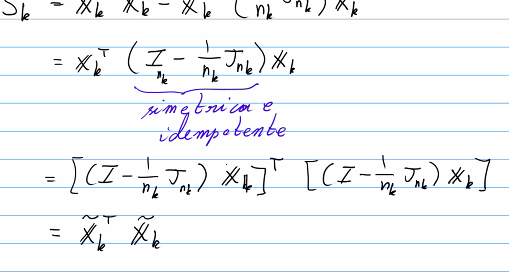 S_k = 𝕏_k^T 𝕏_k - 𝕏_k^T (1/n_k J_{n_k}) 𝕏_k
= 𝕏_k^T (I_{n_k} - 1/n_k J_{n_k}) 𝕏_k
simetrica e
idempotente
= [(I - 1/n_k J_{n_k}) 𝕏_k]^T [(I - 1/n_k J_{n_k}) 𝕏_k]
= 𝕏̃_k^T 𝕏̃_k